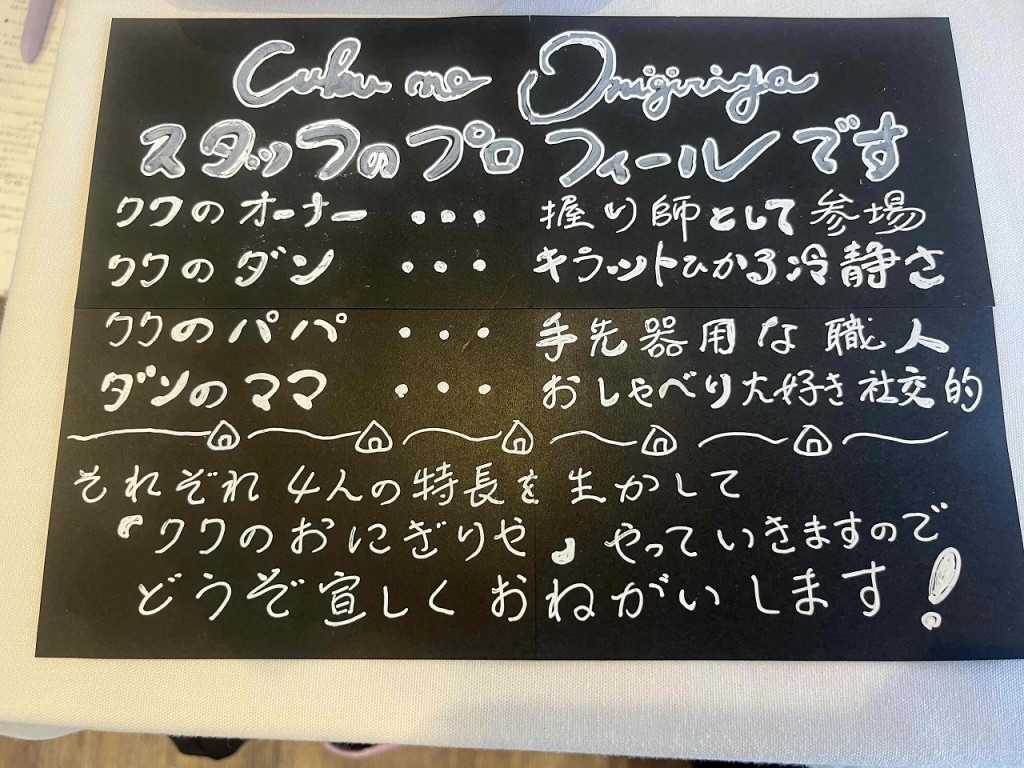 Cuku no Onigiriya
スタッフのプロフィールです
ククのオーナー ・・・ 握り師として参場
ククのダン ・・・ キラットひかる冷静さ
ククのパパ ・・・ 手先器用な職人
ダンのママ ・・・ おしゃべり大好き社交的
それぞれ4人の特長を生かして
『ククのおにぎりや』やっていきますので
どうぞ宜しくおねがいします!